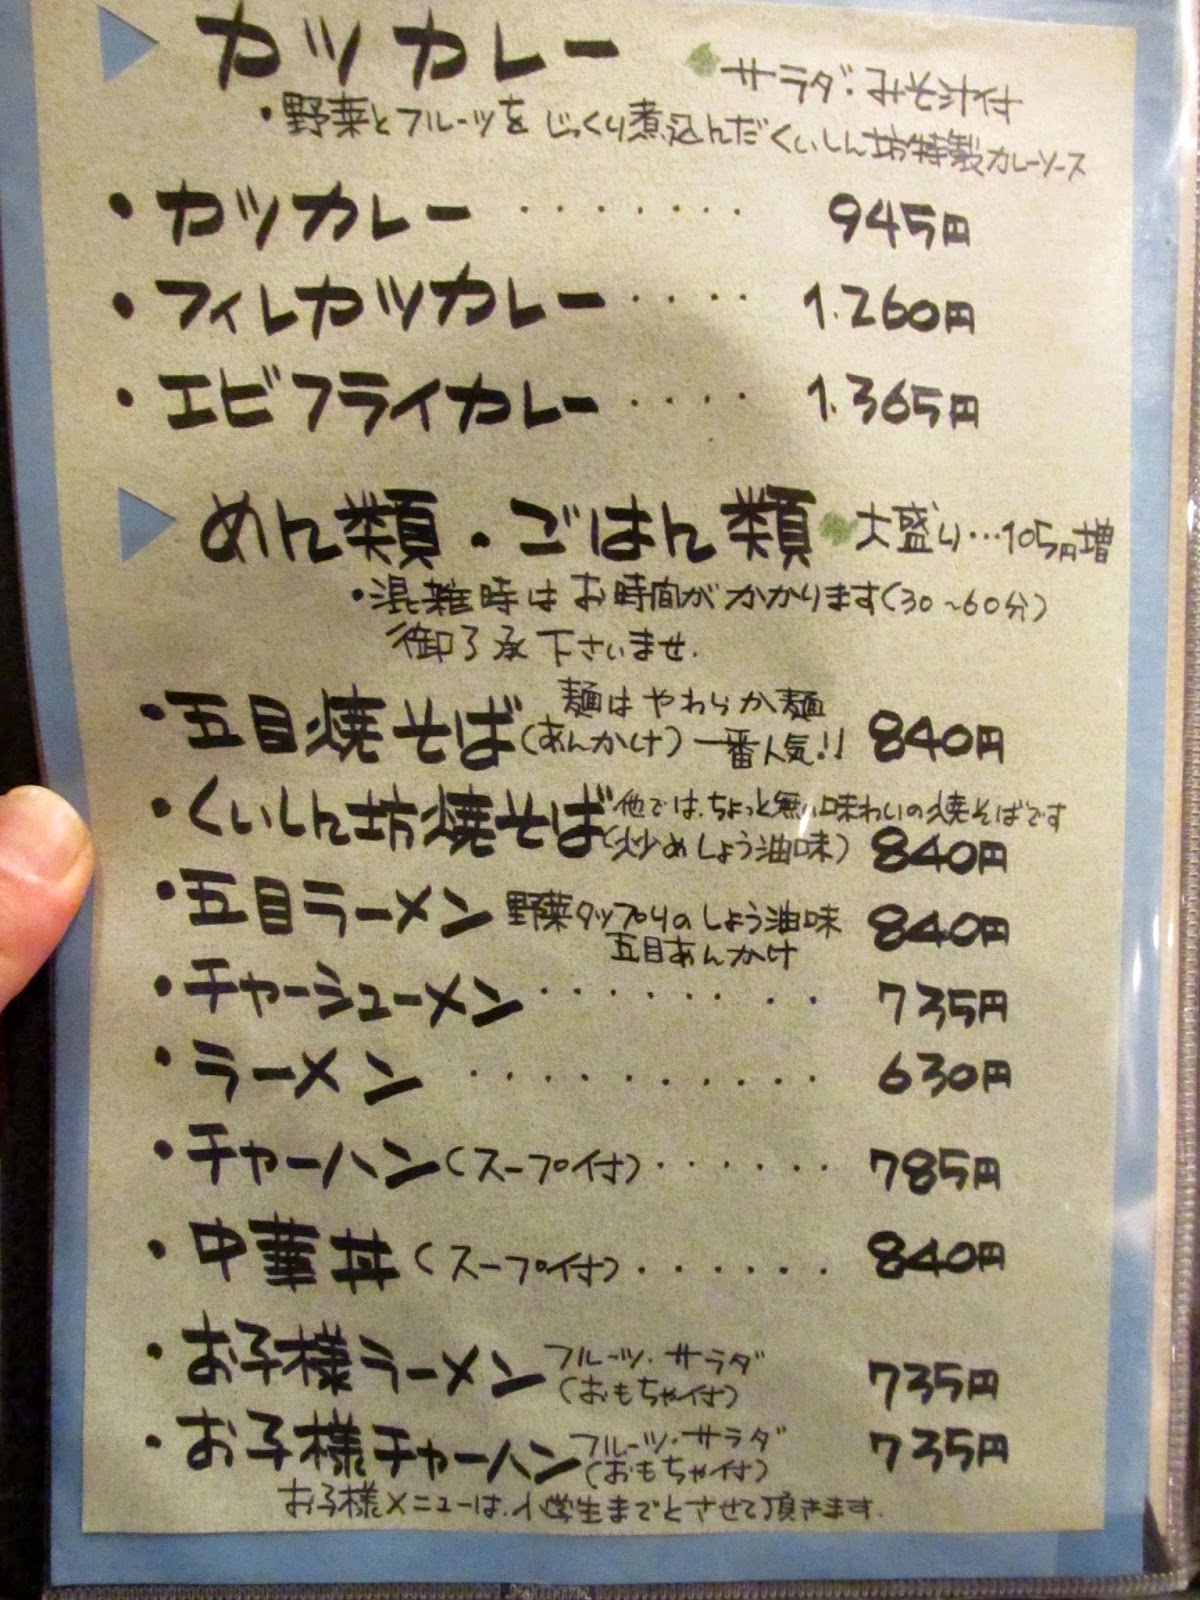 カツカレー サラダ・みそ汁付
・野菜とフルーツをじっくり煮込んだくいしん坊特製カレーソース
・カツカレー ・・・・・・・・ 945円
・フィレカツカレー ・・・・ 1.260円
・エビフライカレー ・・・・ 1.365円
めん類・ごはん類 大盛り…105円増
・混雑時はお時間がかかります(30~60分)
御了承下さいませ.
・五目焼そば(あんかけ) 麺はやわらか麺
一番人気!! 840円
・くいしん坊焼そば 他では、ちょっと無い味わいの焼そばです
(炒めしょう油味) 840円
・五目ラーメン 野菜タップリのしょう油味 840円
五目あんかけ
・チャーシューメン ・・・・・・・・ 735円
・ラーメン ・・・・・・・・・・ 630円
・チャーハン(スープ付)・・・・・・ 785円
・中華丼(スープ付)・・・・・・ 840円
・お子様ラーメン フルーツ・サラダ
(おもちゃ付) 735円
・お子様チャーハン フルーツ・サラダ
(おもちゃ付) 735円
お子様メニューは、小学生までとさせて頂きます.